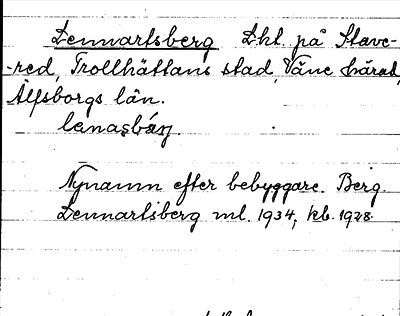 Lennartsberg Lht. på Stave-
-red, Trollhättans stad, Väne härad,
Älfsborgs län.
lenaşbárj.
Nynamn efter bebyggare. Berg.
Lennartsberg ml. 1934, kb. 1928